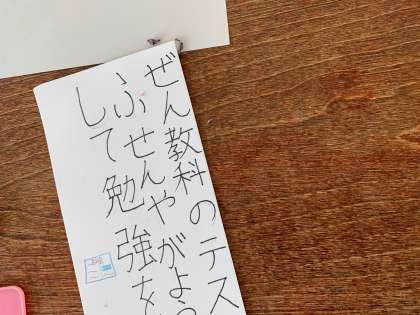 ぜん教科のテス
ふせんやがよう
して勉強を